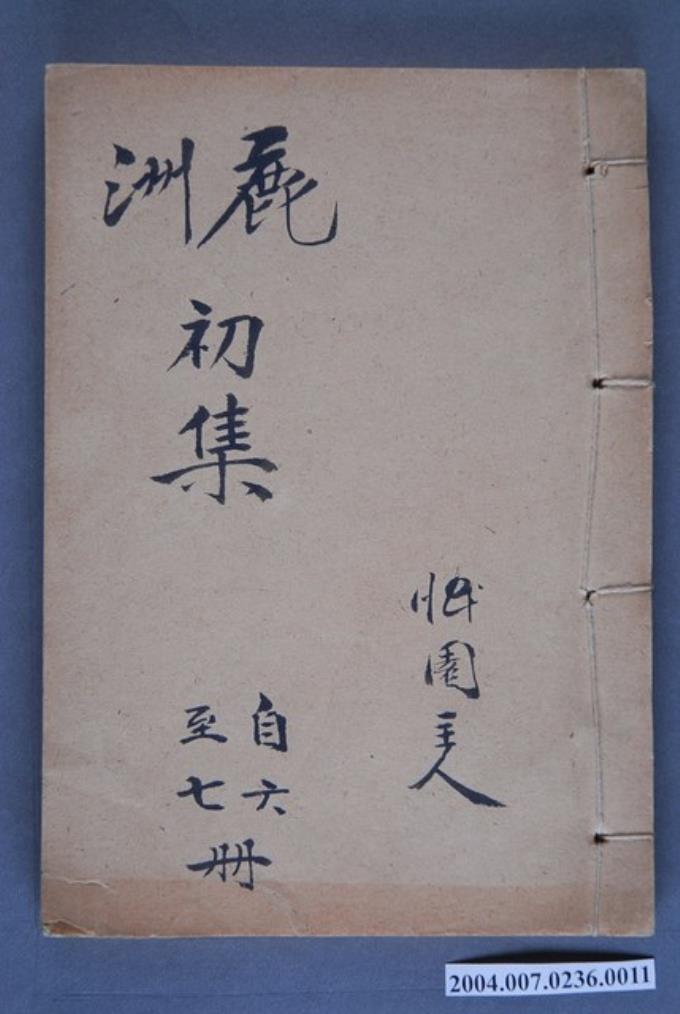 鹿洲
初集
自六
至七
册
園主人
2004.007.0236.0011